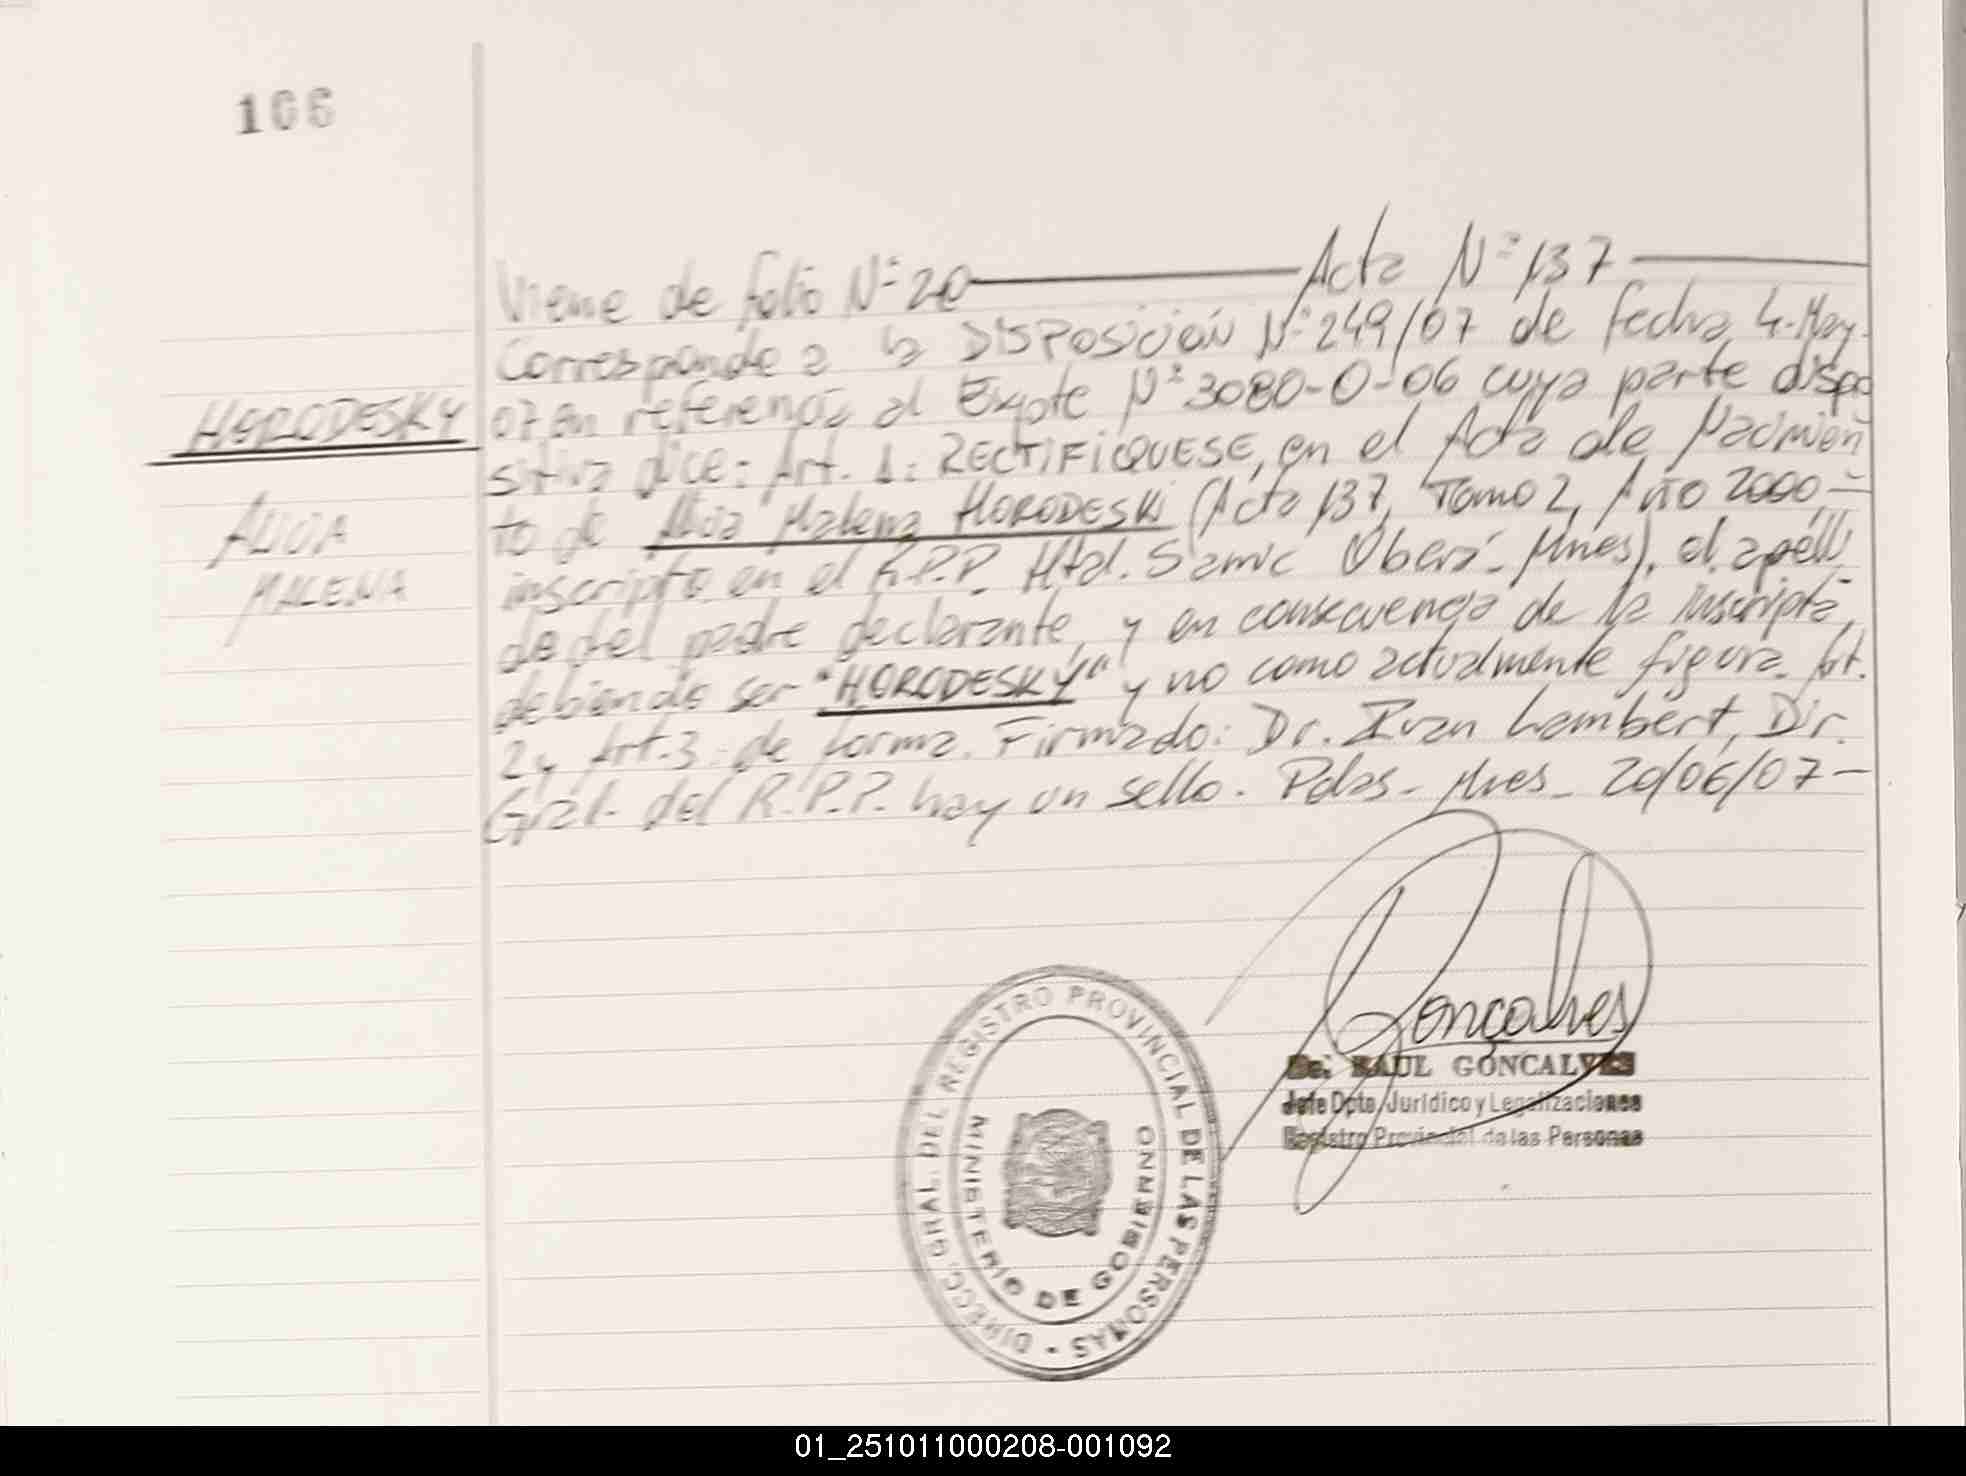 106
Viene de folio N° 20 Acta N° 137
Corresponde a la DISPOSICIÓN N° 249/07 de fecha 4-May-
07 en referencia al Expte N° 3080-O-06 cuya parte dispo
sitiva dice: Art. 1: RECTIFIQUESE, en el Acta de Nacimien
to de Alicia Malena HORODESKI (Acta 137, Tomo 2, Año 2000,-
inscripta en el R.P.P. Htal. Samic Oberá - Mnes), el apelli
do del padre declarante, y en consecuencia de la inscripta,
debiendo ser "HORODESKY" y no como actualmente figura. Art.
2 y Art. 3: de forma. Firmado: Dr. Ivan Lambert, Dir.
Gral. del R.P.P. hay un sello. Pdas - Mnes - 20/06/07 -
HORODESKY
ALICIA
MALENA
Goncalves
Dr. RAUL GONCALVES
Jefe Dpto. Jurídico y Legalizaciones
Registro Provincial de las Personas
DIRECC. GRAL. DEL REGISTRO PROVINCIAL DE LAS PERSONAS
MINISTERIO DE GOBIERNO
01_251011000208-001092